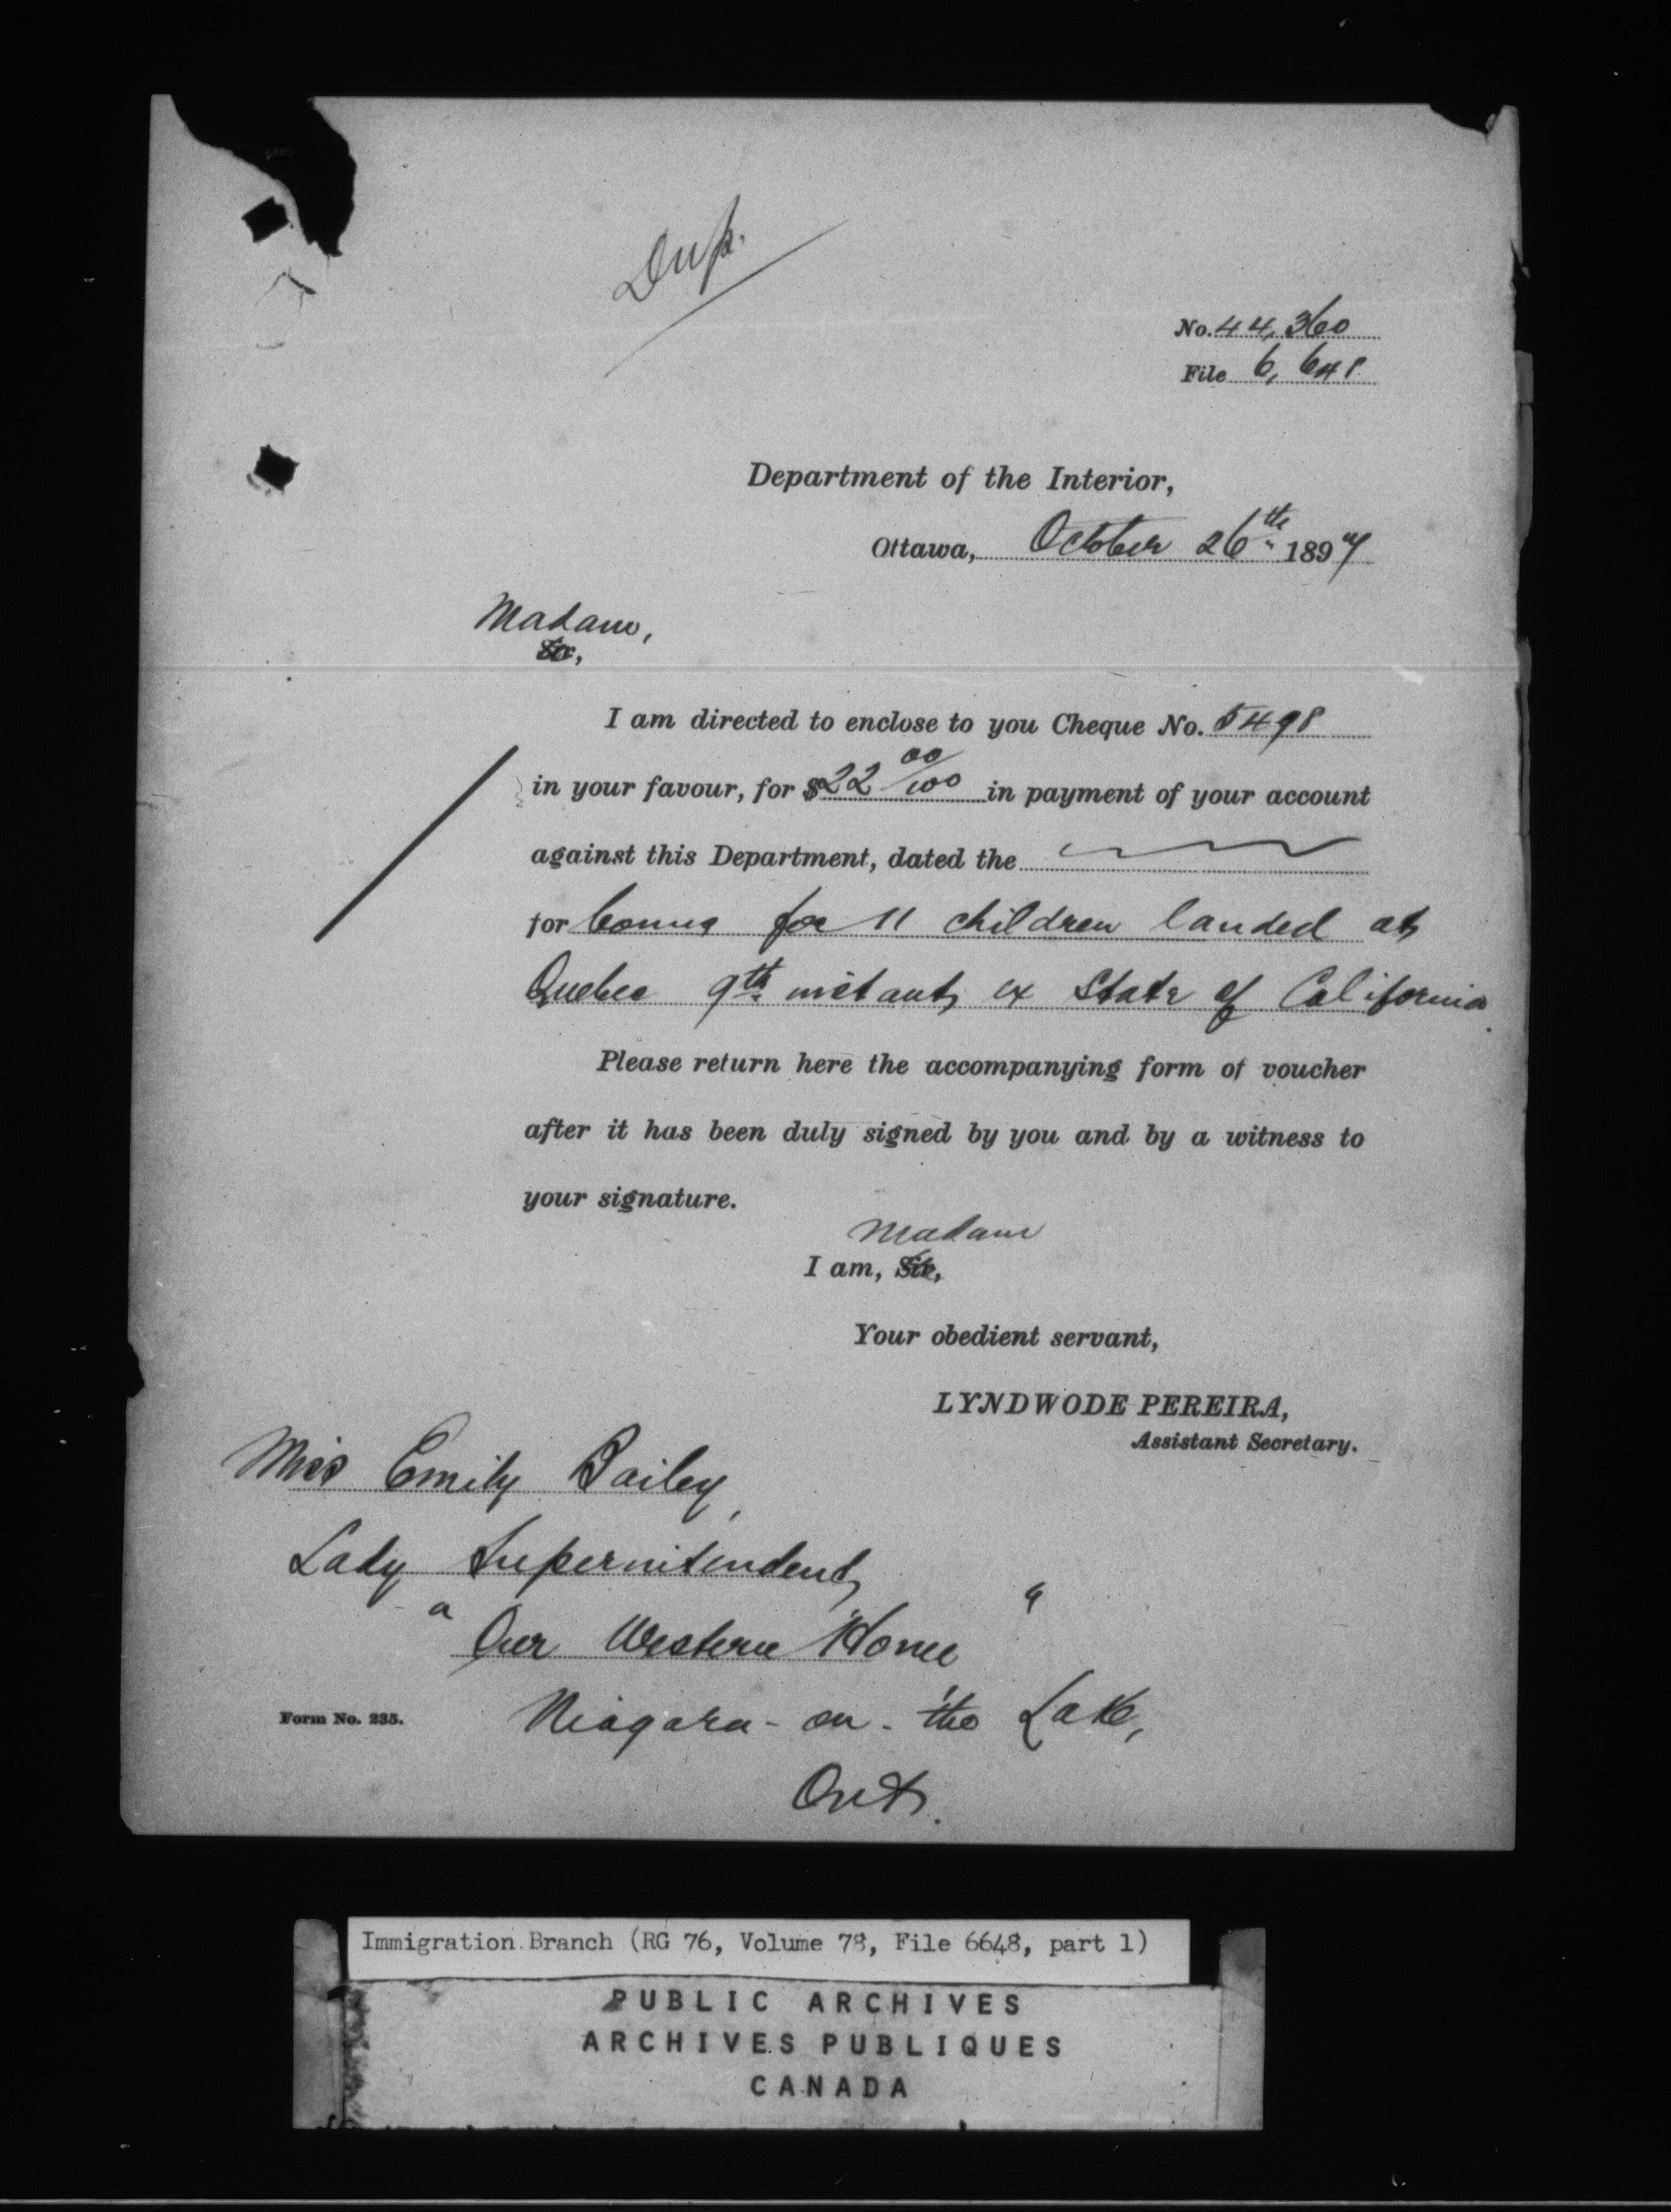 Dup.
No. 44,360
File 6,648
Department of the Interior,
Ottawa, October 26th 1897
Madam,
Sir,
I am directed to enclose to you Cheque No. 5498
in your favour, for $22 00/100 in payment of your account
against this Department, dated the
for bonus for 11 children landed at
Quebec 9th instant, ex State of California.
Please return here the accompanying form of voucher
after it has been duly signed by you and by a witness to
your signature.
Madam
I am, Sir,
Your obedient servant,
LYNDWODE PEREIRA,
Assistant Secretary.
Miss Emily Bailey,
Lady Superintendent,
"Our Western Home"
Form No. 235.
Niagara-on-the Lake,
Ont.
Immigration Branch (RG 76, Volume 78, File 6648, part 1)
PUBLIC ARCHIVES
ARCHIVES PUBLIQUES
CANADA